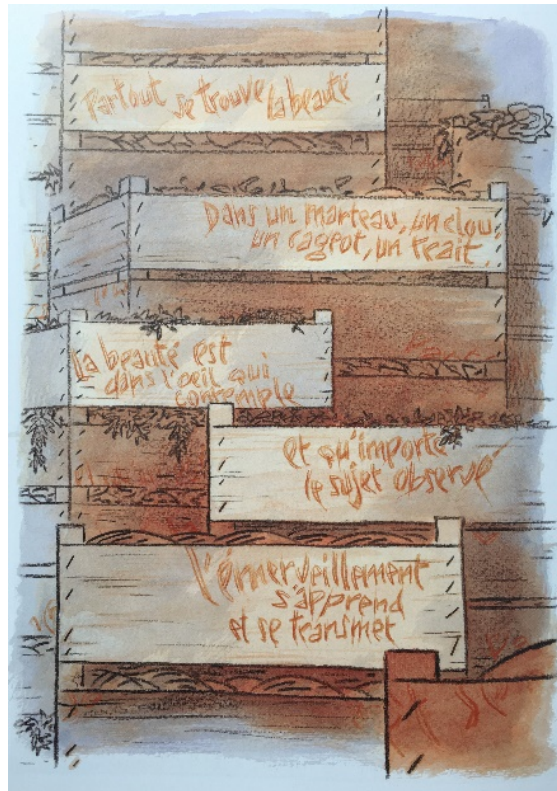 Partout se trouve la beauté
Dans un marteau, un clou
un cageot, un trait.
La beauté est
dans l'oeil qui
contemple
et qu'importe
le sujet observé
L'émerveillement
s'apprend
et se transmet